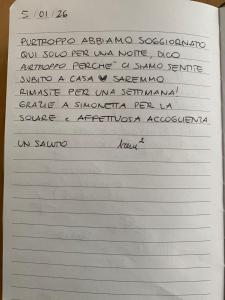 5/01/26
PURTROPPO ABBIAMO SOGGIORNATO
QUI SOLO PER UNA NOTTE, DICO
PURTROPPO PERCHE' CI SIAMO SENTITE
SUBITO A CASA ♥ SAREMMO
RIMASTE PER UNA SETTIMANA!
GRAZIE A SIMONETTA PER LA
SOLARE e AFFETTUOSA ACCOGLIENZA
UN SALUTO